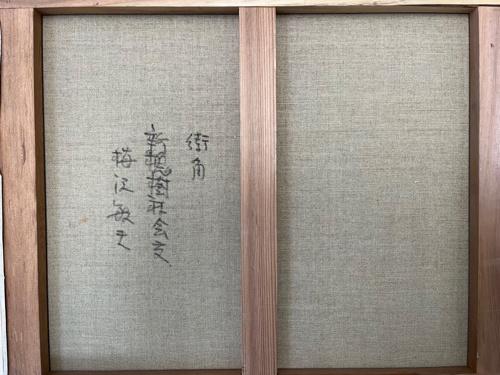 街角
新槐樹社会友
梅沢敏夫